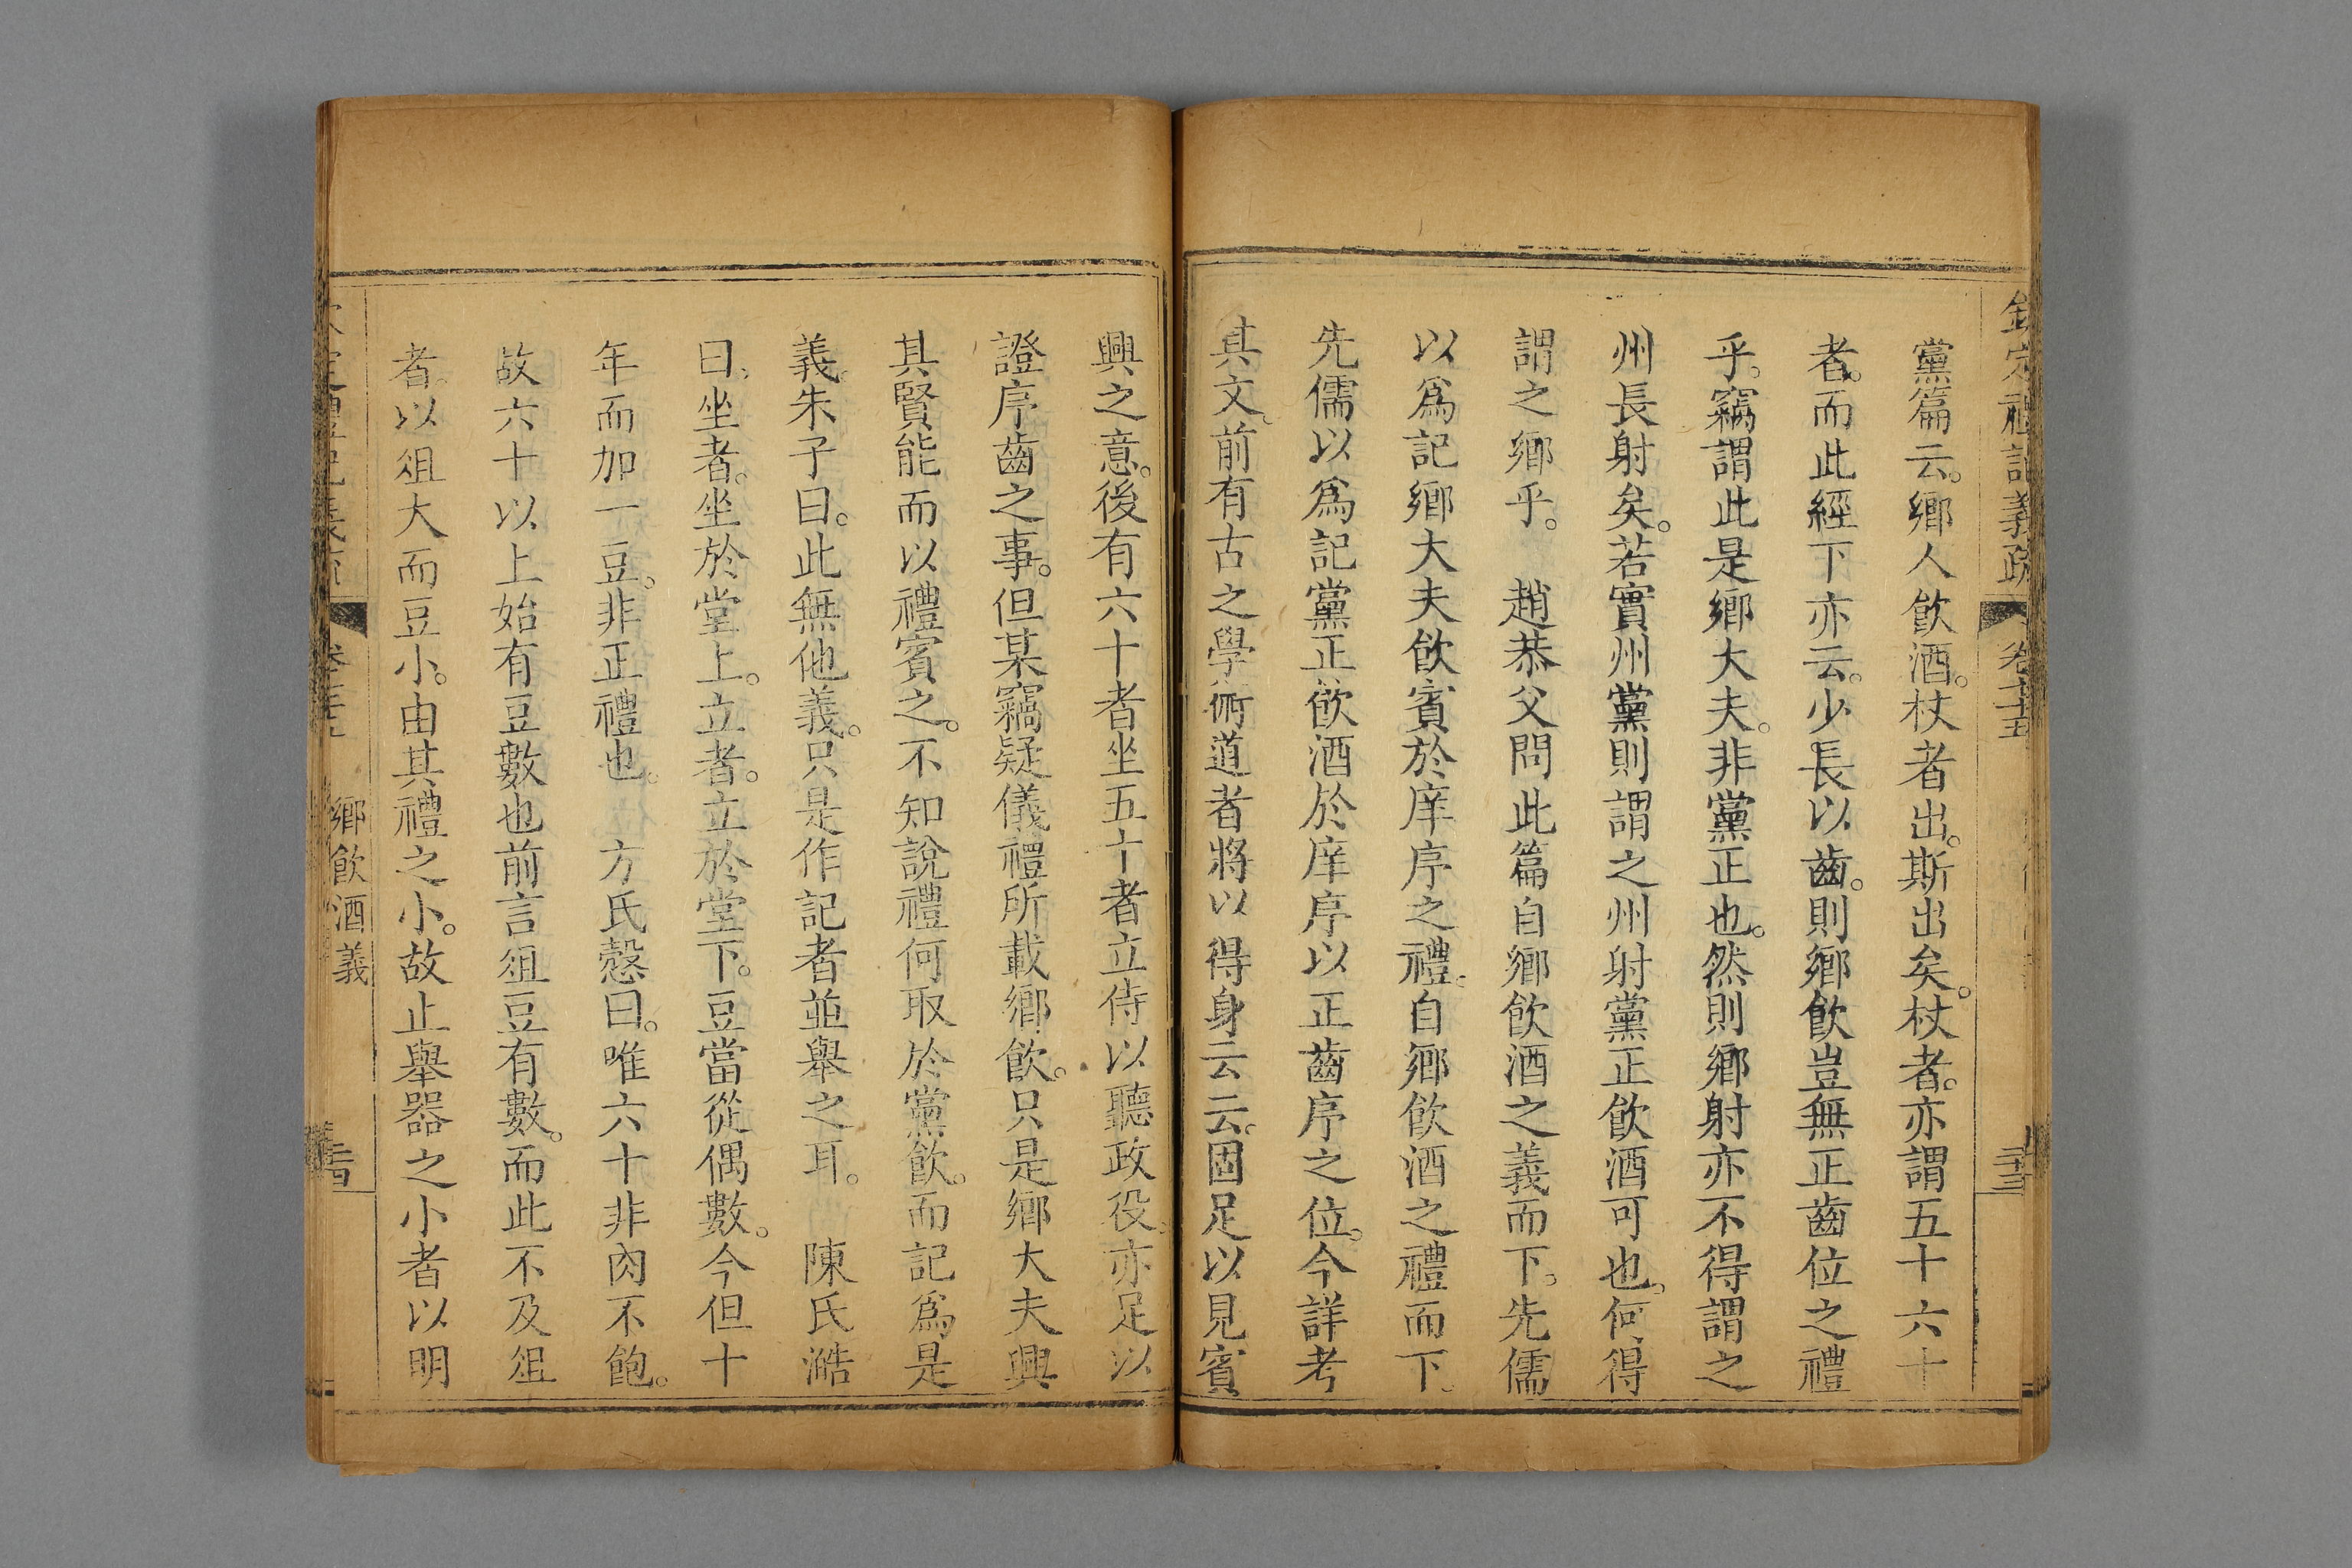 欽定禮記義疏 卷七十五 三十三
黨篇云。鄉人飲酒。杖者出。斯出矣。杖者。亦謂五十六十
者。而此經下亦云。少長以齒。則鄉飲豈無正齒位之禮
乎。竊謂此是鄉大夫。非黨正也。然則鄉射亦不得謂之
州長射矣。若實州黨則謂之州射黨正飲酒可也。何得
謂之鄉乎。　趙恭父問此篇自鄉飲酒之義而下。先儒
以爲記鄉大夫飲賓於庠序之禮。自鄉飲酒之禮而下。
先儒以爲記黨正飲酒於庠序以正齒序之位。今詳考
其文。前有古之學術道者將以得身云云。固足以見賓
興之意。後有六十者坐五十者立侍以聽政役。亦足以
證序齒之事。但某竊疑儀禮所載鄉飲。只是鄉大夫興
其賢能而以禮賓之。不知說禮何取於黨飲。而記爲是
義。朱子曰。此無他義。只是作記者並舉之耳。　陳氏澔
曰。坐者。坐於堂上。立者。立於堂下。豆當從偶數。今但十
年而加一豆。非正禮也。　方氏慤曰。唯六十非肉不飽。
故六十以上始有豆數也前言俎豆有數。而此不及俎
者。以俎大而豆小。由其禮之小。故止舉器之小者以明
鄉飲酒義